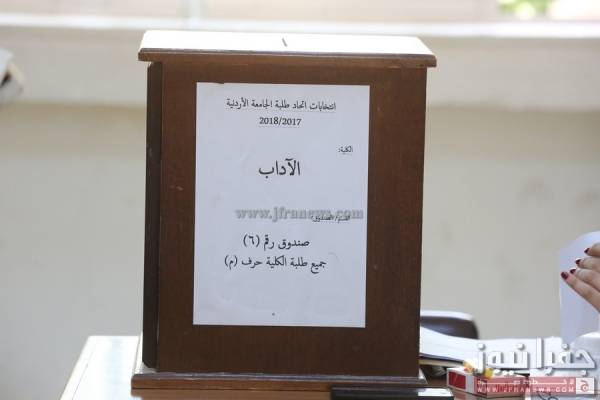 انتخابات اتحاد طلبة الجامعة الأردنية
2018/2017
الكلية:
الآداب
www.jfranews.com
القسم/الصندوق:
صندوق رقم (٦)
جميع طلبة الكلية حرف (م)
جفرا نيوز
WWW.JFRANEWS.COM